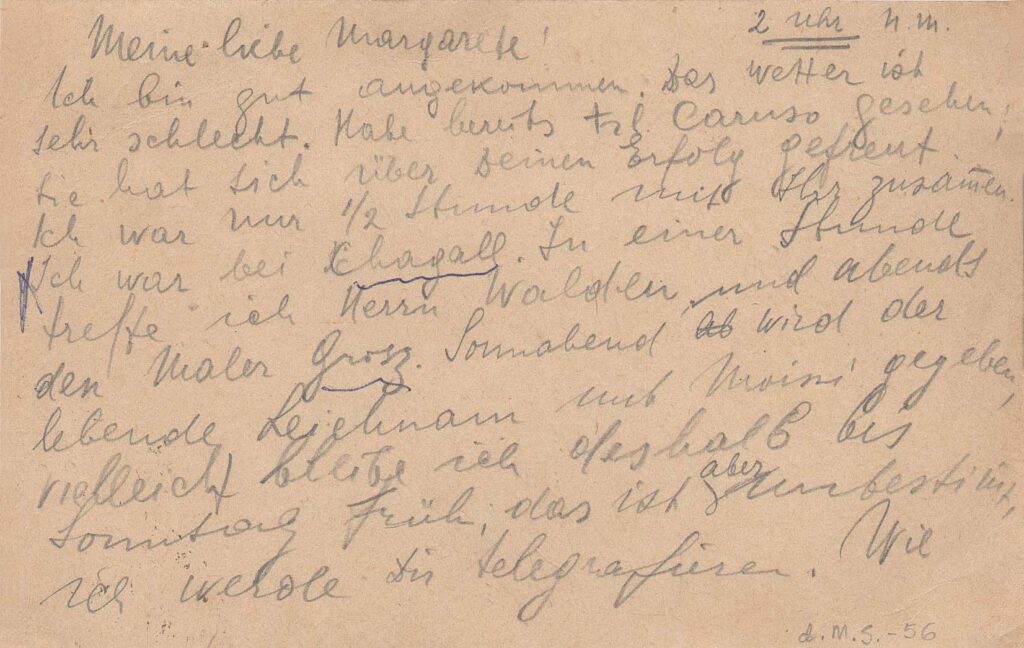 2 Uhr N.M.
Meine liebe Margarete!
Ich bin gut angekommen. Das Wetter ist
sehr schlecht. Habe bereits Frl. Caruso gesehen,
sie hat sich über Deinen Erfolg gefreut.
Ich war nur 1/2 Stunde mit Ihr zusam̅en.
Ich war bei Chagall. In einer Stunde
treffe ich Herrn Walden, und abends
den Maler Grosz. Sonnabend wird der
lebende Leichnam mit Moissi gegeben,
vielleicht bleibe ich deshalb bis
Sonntag früh, das ist aber unbestim̅t,
ich werde Dir telegrafieren. Wie
d.M.S.-56